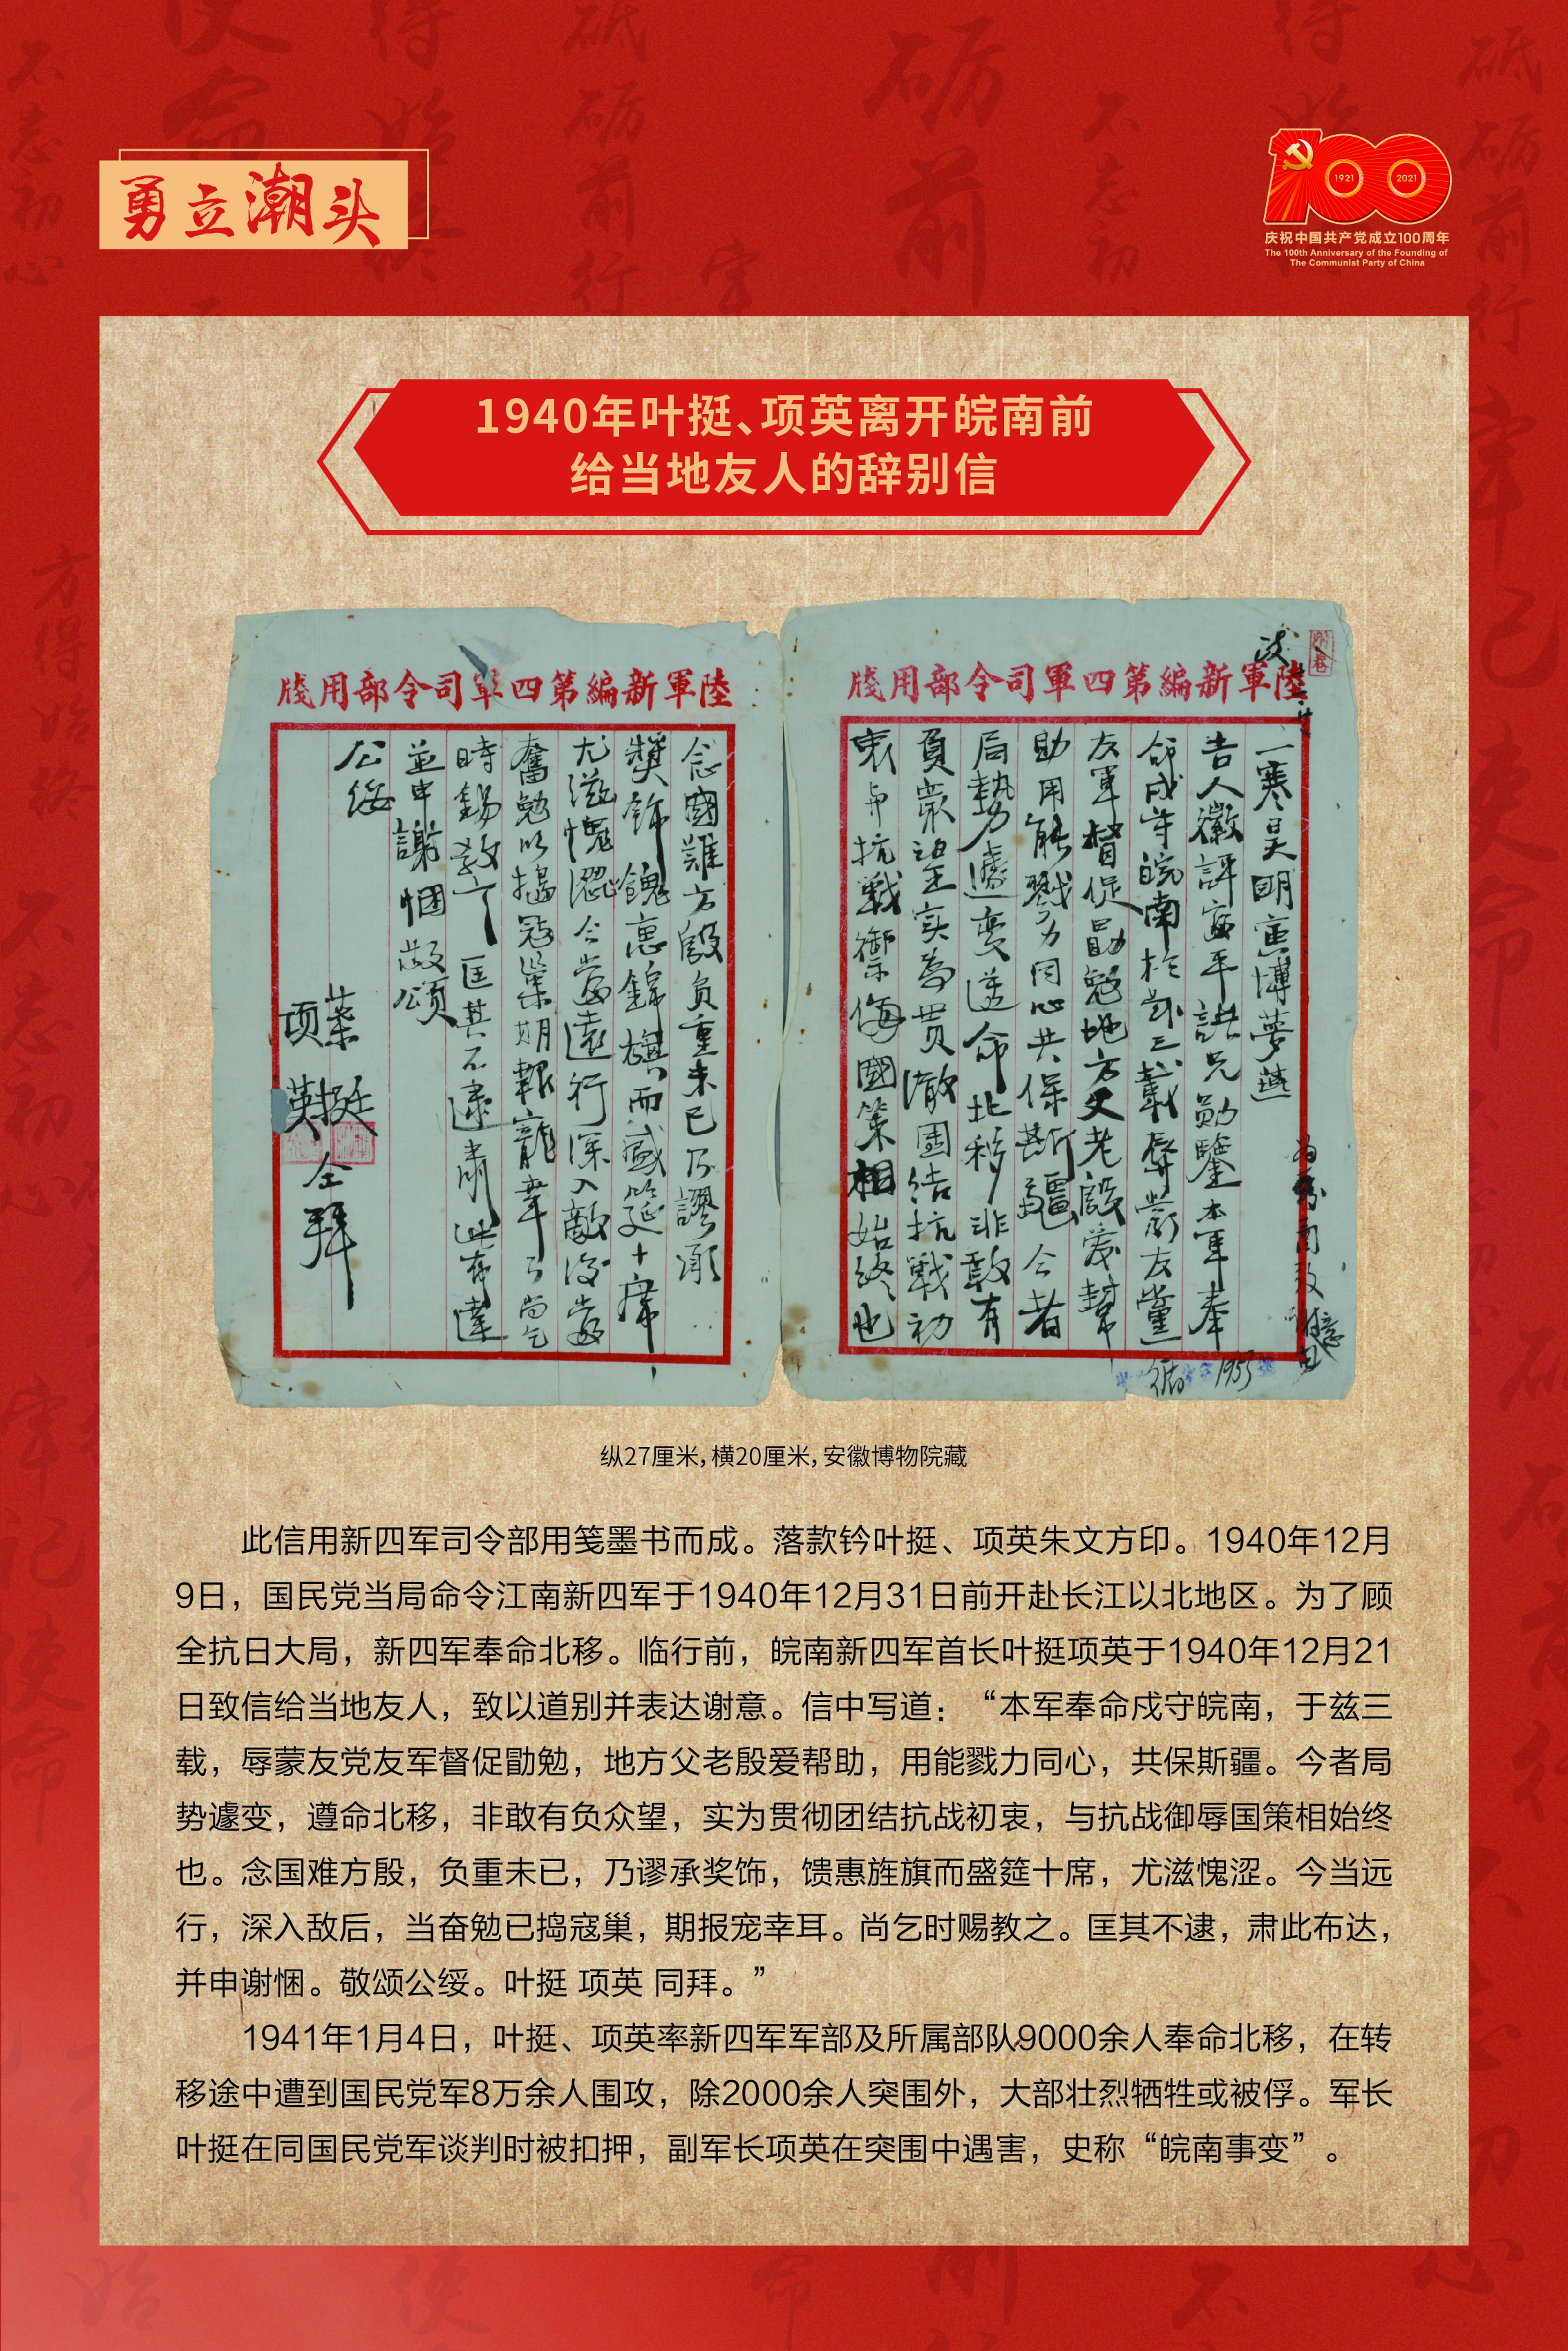 勇立潮头
1921
2021
庆祝中国共产党成立100周年
The 100th Anniversary of the Founding of
The Communist Party of China
1940年叶挺、项英离开皖南前
给当地友人的辞别信
陸軍新編第四軍司令部用牋
一寒吴明寅博夢燕
命戍守皖南於茲三載辱蒙友黨
友軍督促勖勉地方父老殷爱幫
助用能戮力同心共保斯疆今者
局勢遽变遵命北移非敢有
負衆望实為贯澈團结抗戰初
衷与抗戰禦侮國策相始終也
1955
陸軍新編第四軍司令部用牋
念國難方殷负重未已乃謬承
獎飾餽惠錦旗而盛筵十席
尤滋愧澀今當遠行深入敵後當
奮勉以搗寇巢期報寵幸耳尚乞
時錫教之匡其不逮肅此布達
並申謝悃敬颂
公绥
葉挺
项英
仝拜
纵27厘米，横20厘米，安徽博物院藏
此信用新四军司令部用笺墨书而成。落款钤叶挺、项英朱文方印。1940年12月
9日，国民党当局命令江南新四军于1940年12月31日前开赴长江以北地区。为了顾
全抗日大局，新四军奉命北移。临行前，皖南新四军首长叶挺项英于1940年12月21
日致信给当地友人，致以道别并表达谢意。信中写道：“本军奉命戍守皖南，于兹三
载，辱蒙友党友军督促勖勉，地方父老殷爱帮助，用能戮力同心，共保斯疆。今者局
势遽变，遵命北移，非敢有负众望，实为贯彻团结抗战初衷，与抗战御辱国策相始终
也。念国难方殷，负重未已，乃谬承奖饰，馈惠旌旗而盛筵十席，尤滋愧涩。今当远
行，深入敌后，当奋勉已捣寇巢，期报宠幸耳。尚乞时赐教之。匡其不逮，肃此布达，
并申谢悃。敬颂公绥。叶挺 项英 同拜。”
1941年1月4日，叶挺、项英率新四军军部及所属部队9000余人奉命北移，在转
移途中遭到国民党军8万余人围攻，除2000余人突围外，大部壮烈牺牲或被俘。军长
叶挺在同国民党军谈判时被扣押，副军长项英在突围中遇害，史称“皖南事变”。